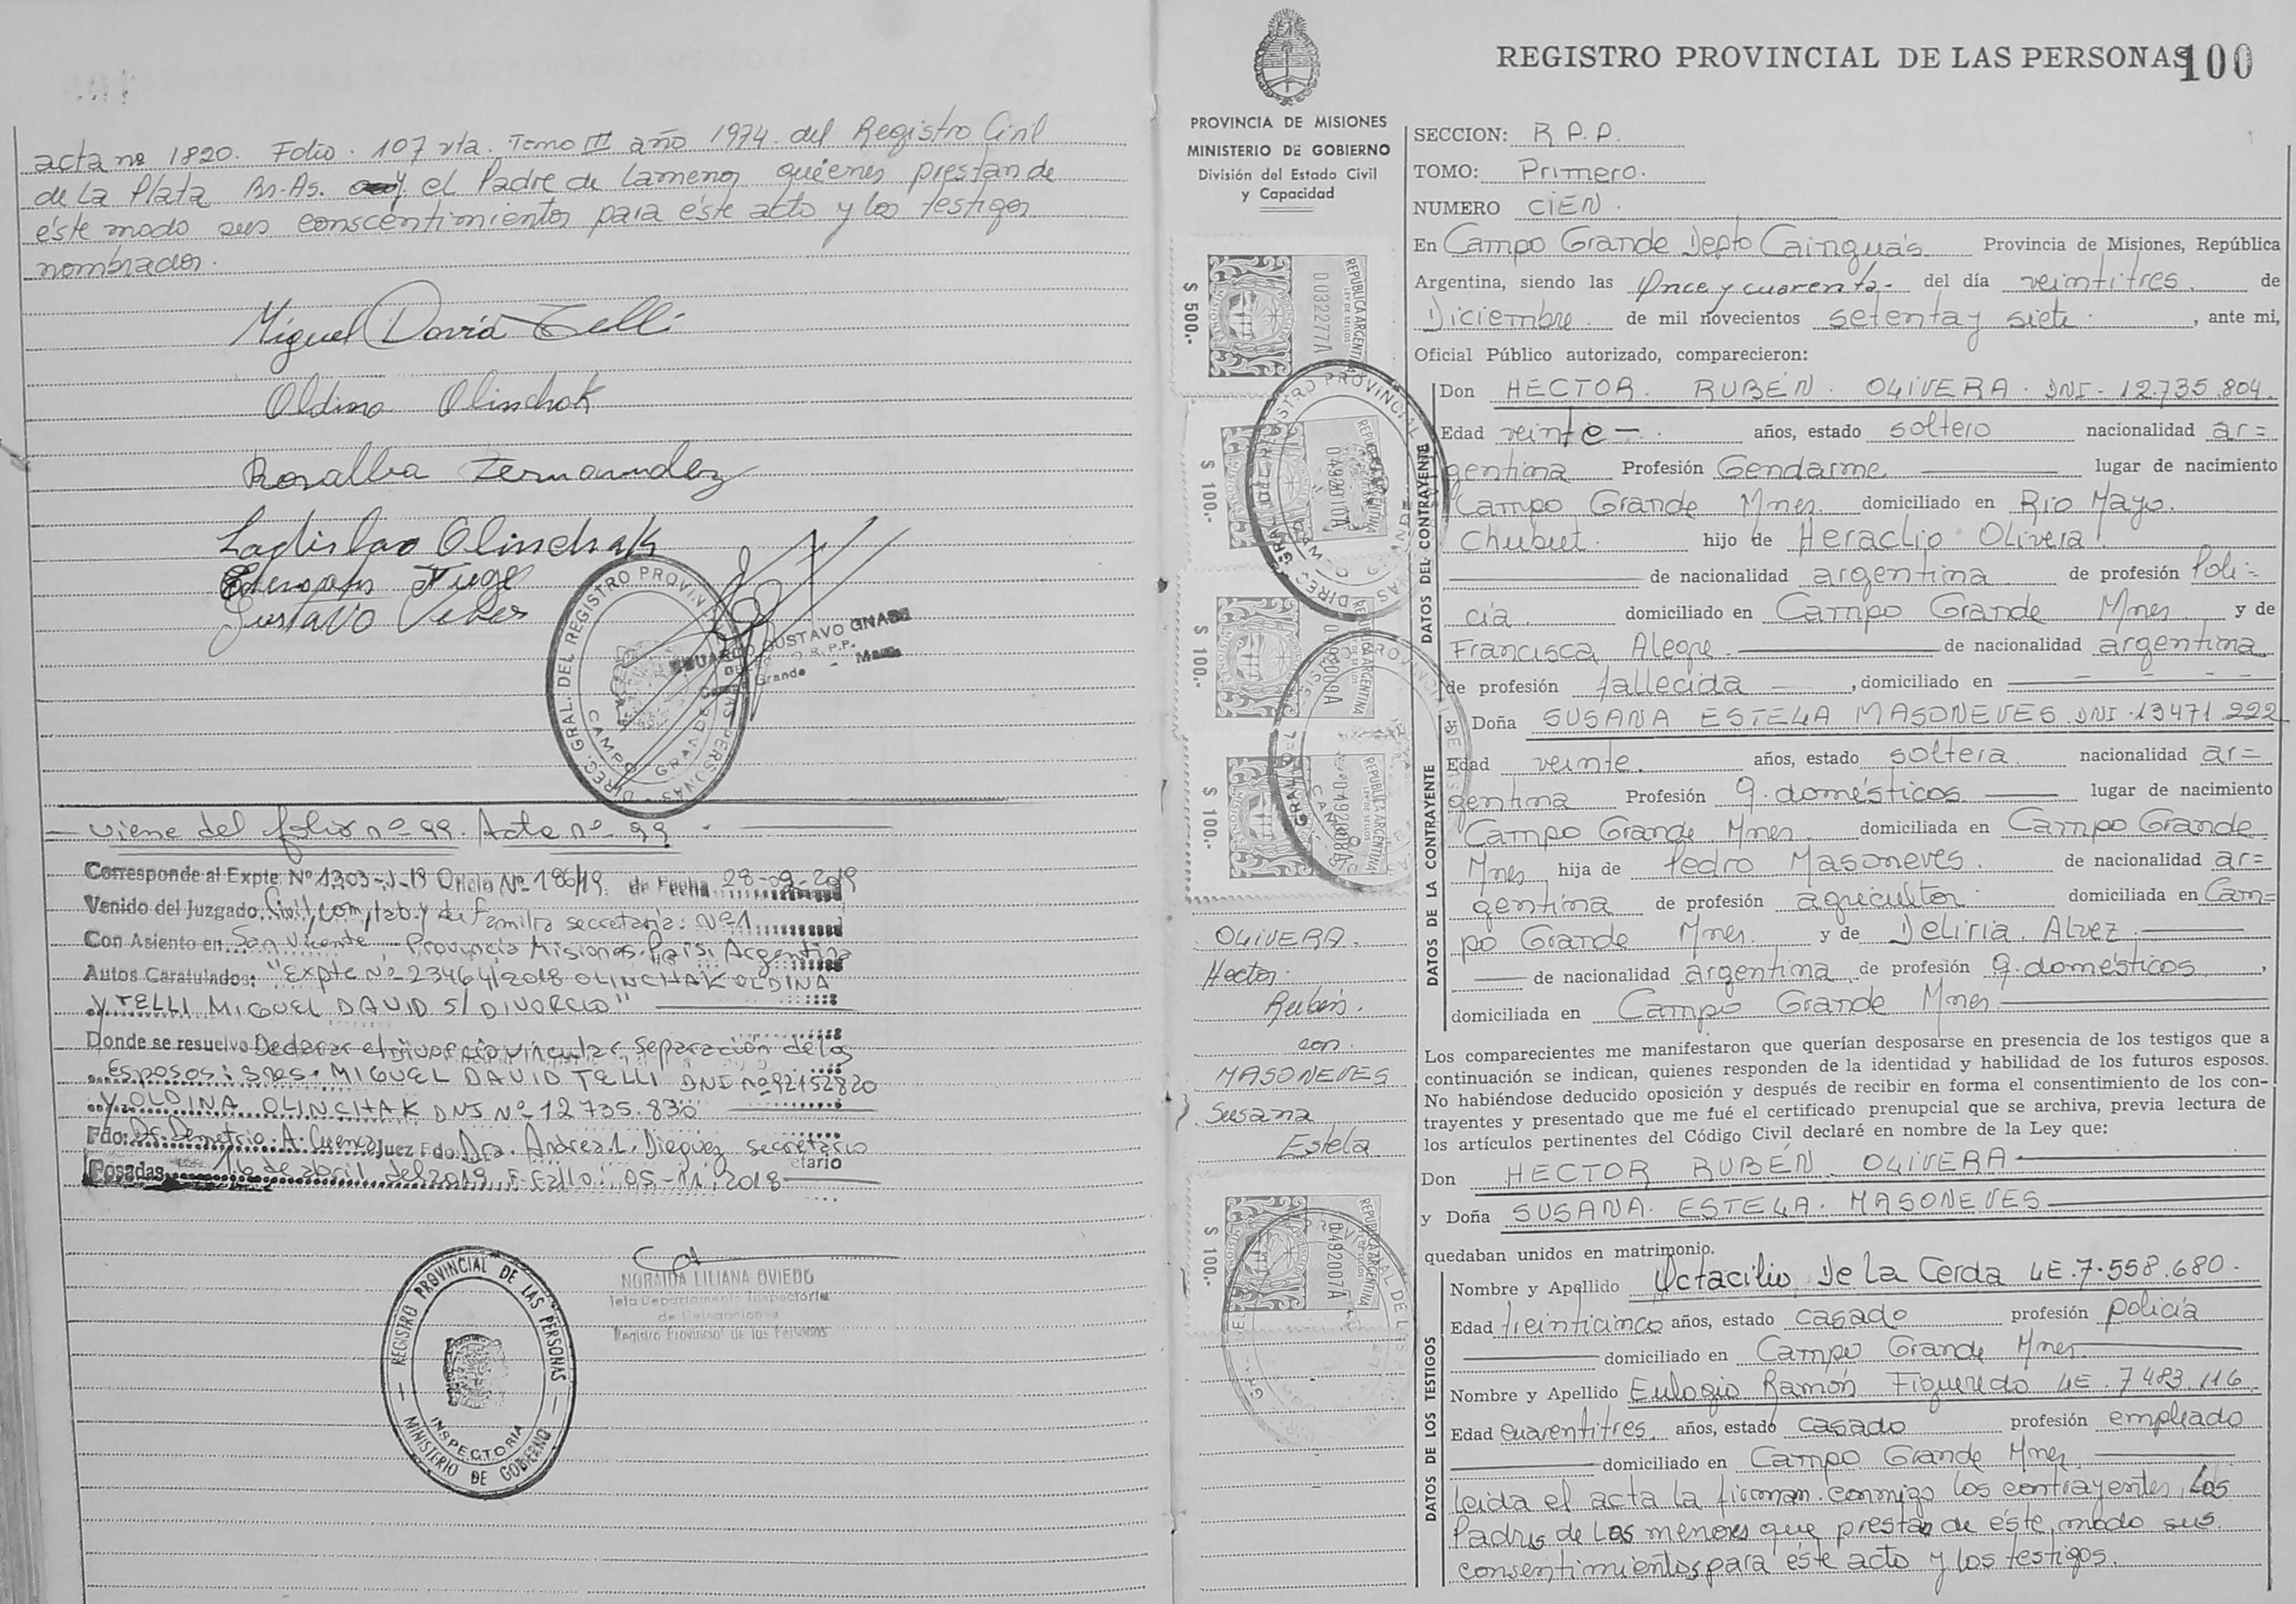 acta nº 1820. Folio. 107 vta. Tomo III año 1974. del Registro Civil
de La Plata Bs. As. y el Padre de la menor quiénes prestan de
éste modo sus conscentimientos para éste acto y los testigos
nombrados.
Miguel David Telli
Oldina Olinchok
Rosalba Fernandez
Ladislao Olinchak
Gustavo
DIREC. GRAL. DEL REGISTRO PROVINCIAL DE LAS PERSONAS
CAMPO GRANDE
EDUARDO GUSTAVO GNASS
R.P.P.
Campo Grande - Mnes.
viene del folio nº 99. Acta nº 99.
Corresponde al Expte. Nº 1303-J-19 Oficio Nº 186/19. de Fecha 28-02-2019
Venido del Juzgado Civil, Com, Lab. y de Familia secretaría: Nº 1
Con Asiento en San Vicente Provincia Misiones País: Argentina
Autos Caratulados: "Expte Nº 23464/2018 OLINCHAK OLDINA
y TELLI MIGUEL DAVID S/ DIVORCIO"
Donde se resuelve Declarar el divorcio vincular, separación de los
Esposos: Sres. MIGUEL DAVID TELLI DNI nº 92152820
y OLDINA OLINCHAK DNI Nº 12735.830
Fdo: Dr. Demetrio. A. Cuenca Juez Fdo. Dra. Andrea. L. Dieguez secretario
Posadas 16 de abril del 2019 Fallo: 05-11-2018
NORAIDA LILIANA OVIEDO
Jefa Departamento Inspectoria
de Delegaciones
Registro Provincial de las Personas
REGISTRO PROVINCIAL DE LAS PERSONAS
INSPECTORIA
MINISTERIO DE GOBIERNO
PROVINCIA DE MISIONES
MINISTERIO DE GOBIERNO
División del Estado Civil
y Capacidad
$ 500.-
REPUBLICA ARGENTINA
LEY DE SELLOS
0032277A
MISIONES
$ 100.-
0492010A
$ 100.-
0492009A
$ 100.-
0492008A
OLIVERA.
Hector.
Rubén.
con.
MASONEVES
Susana
Estela
$ 100.-
0492007A
REGISTRO PROVINCIAL DE LAS PERSONAS
100
SECCION: R.P.P.
TOMO: Primero.
NUMERO CIEN.
En Campo Grande Depto Cainguás Provincia de Misiones, República
Argentina, siendo las Once y cuarenta- del día veintitres. de
Diciembre. de mil novecientos setenta y siete. , ante mi,
Oficial Público autorizado, comparecieron:
DATOS DEL CONTRAYENTE
Don HECTOR. RUBÉN. OLIVERA. DNI. 12.735.804.
Edad veinte-. años, estado soltero nacionalidad ar=
gentina Profesión Gendarme lugar de nacimiento
Campo Grande Mnes. domiciliado en Río Mayo.
Chubut. hijo de Heraclio Olivera.
de nacionalidad argentina de profesión Poli=
cía. domiciliado en Campo Grande Mnes. y de
Francisca Alegre. de nacionalidad argentina
de profesión fallecida , domiciliado en
DATOS DE LA CONTRAYENTE
Doña SUSANA ESTELA MASONEVES. DNI. 13471.222
Edad veinte. años, estado soltera. nacionalidad ar=
gentina Profesión q. domésticos. lugar de nacimiento
Campo Grande Mnes. domiciliada en Campo Grande
Mnes hija de Pedro Masoneves. de nacionalidad ar=
gentina de profesión agricultor. domiciliada en Cam=
po Grande Mnes. y de Deliria. Alvez.
de nacionalidad argentina de profesión q. domésticos ,
domiciliada en Campo Grande Mnes.
Los comparecientes me manifestaron que querían desposarse en presencia de los testigos que a
continuación se indican, quienes responden de la identidad y habilidad de los futuros esposos.
No habiéndose deducido oposición y después de recibir en forma el consentimiento de los con-
trayentes y presentado que me fué el certificado prenupcial que se archiva, previa lectura de
los artículos pertinentes del Código Civil declaré en nombre de la Ley que:
Don HECTOR RUBÉN. OLIVERA
y Doña SUSANA. ESTELA. MASONEVES
quedaban unidos en matrimonio.
DATOS DE LOS TESTIGOS
Nombre y Apellido Octacilio, De la Cerda LE. 7.558.680.
Edad treinticinco años, estado casado profesión policía
domiciliado en Campo Grande Mnes.
Nombre y Apellido Eulogio Ramón Figueredo LE. 7483.116.
Edad cuarentitres. años, estado casado profesión empleado
domiciliado en Campo Grande Mnes.
leida el acta la firman conmigo los contrayentes, Los
Padres de Los menores que prestan de éste modo sus
consentimientos para éste acto y los testigos.